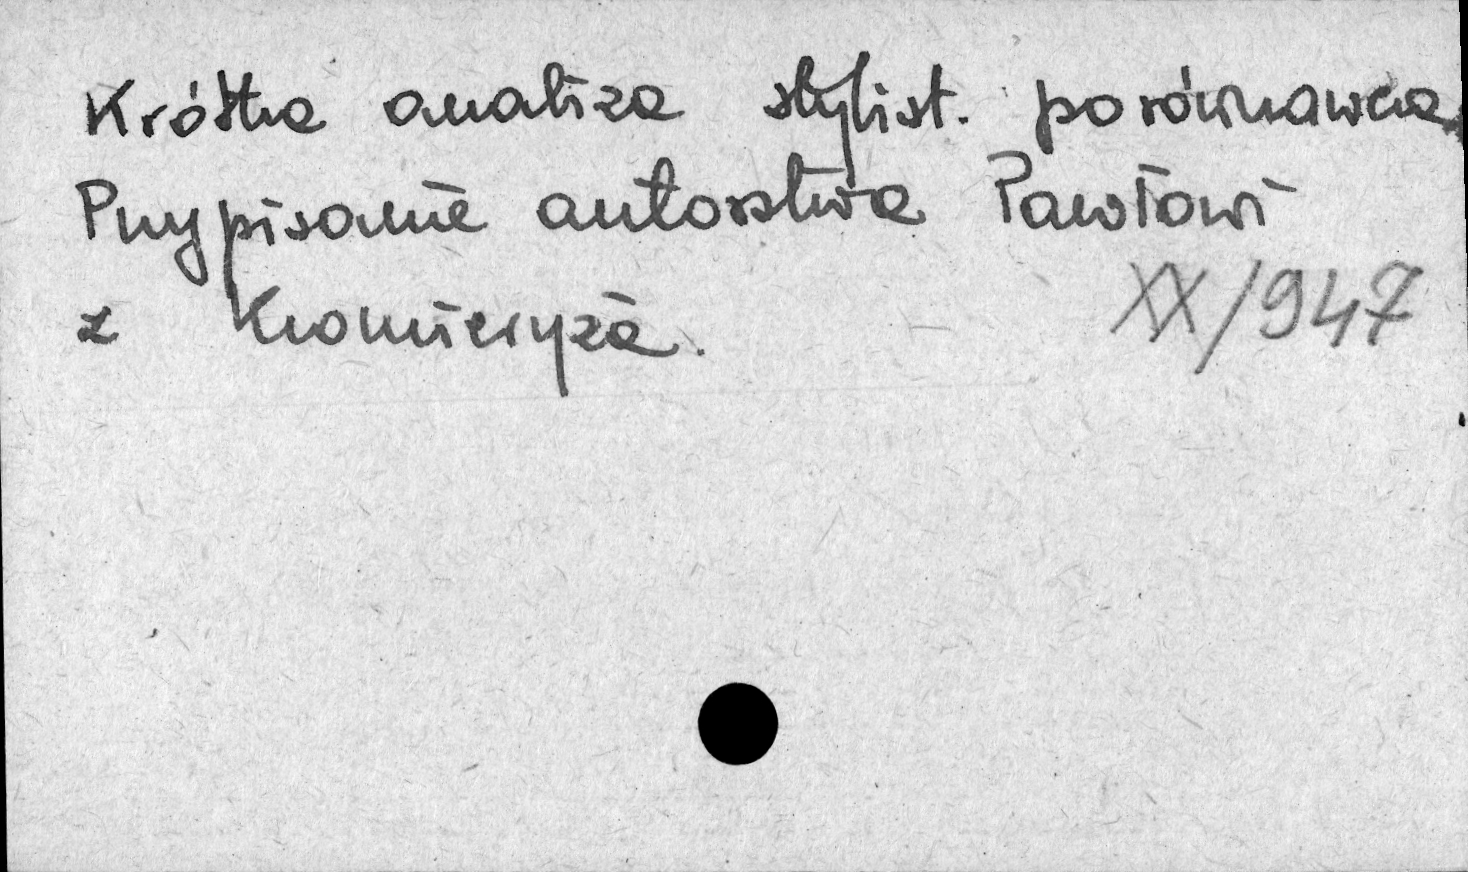 Krótka analiza stylist. porównawcza.
Przypisanie autorstwa Pawłowi
z Kromieryża.
XX/947